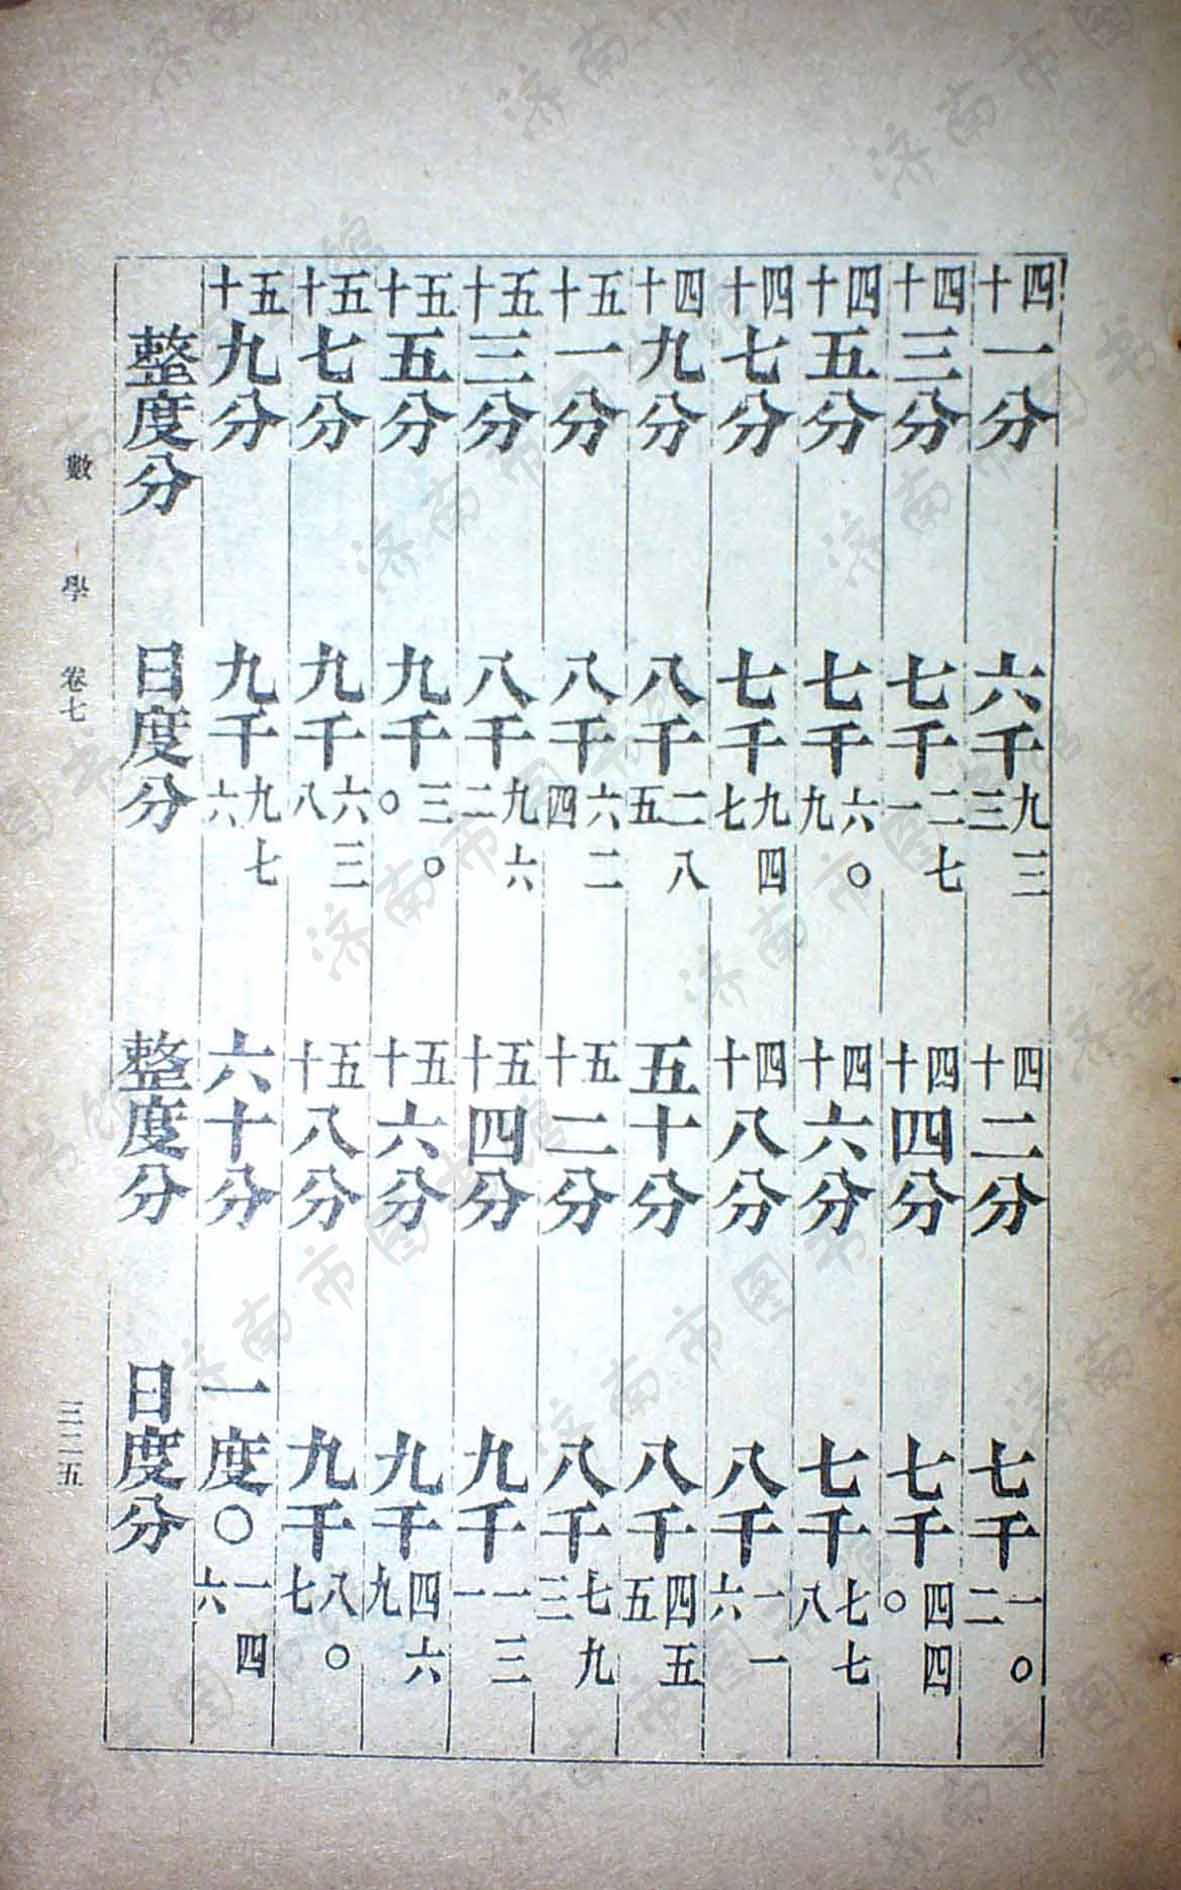 四十一分 六千九三三 四十二分 七千一〇二
四十三分 七千二七一 四十四分 七千四四〇
四十五分 七千六〇九 四十六分 七千七七八
四十七分 七千九四七 四十八分 八千一一六
四十九分 八千二八五 五十分 八千四五五
五十一分 八千六二四 五十二分 八千七九三
五十三分 八千九六二 五十四分 九千一三一
五十五分 九千三〇〇 五十六分 九千四六九
五十七分 九千六三八 五十八分 九千八〇七
五十九分 九千九七六 六十分 一度〇一四六
整度分 日度分 整度分 日度分
數學 卷七 三二五
济南市图书馆